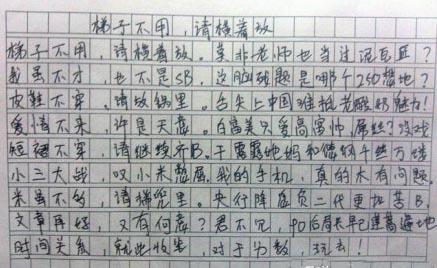 梯子不用，请横着放
梯子不用，请横着放。莫非老师也当过泥瓦匠？
我虽不才，也不是SB。这脑破题是哪个250想地？
皮鞋不穿，请放锅里。舌尖上中国难抵老酸奶魅力！
爱情不来，许是天意。白富美只爱高富帅，屌丝？没戏
短裙不穿，请继续齐B。干露露她妈和儒钢千丝万缕
小三大战，叹小米憋屈。我的手机，真的木有问题。
米虽不多，请揣兜里。央行降息负二代更加苦B。
文章再好，又有何意？君不见，90后局长早已遭高遍地
时间关系，就此收笔，对于分数，玩去！